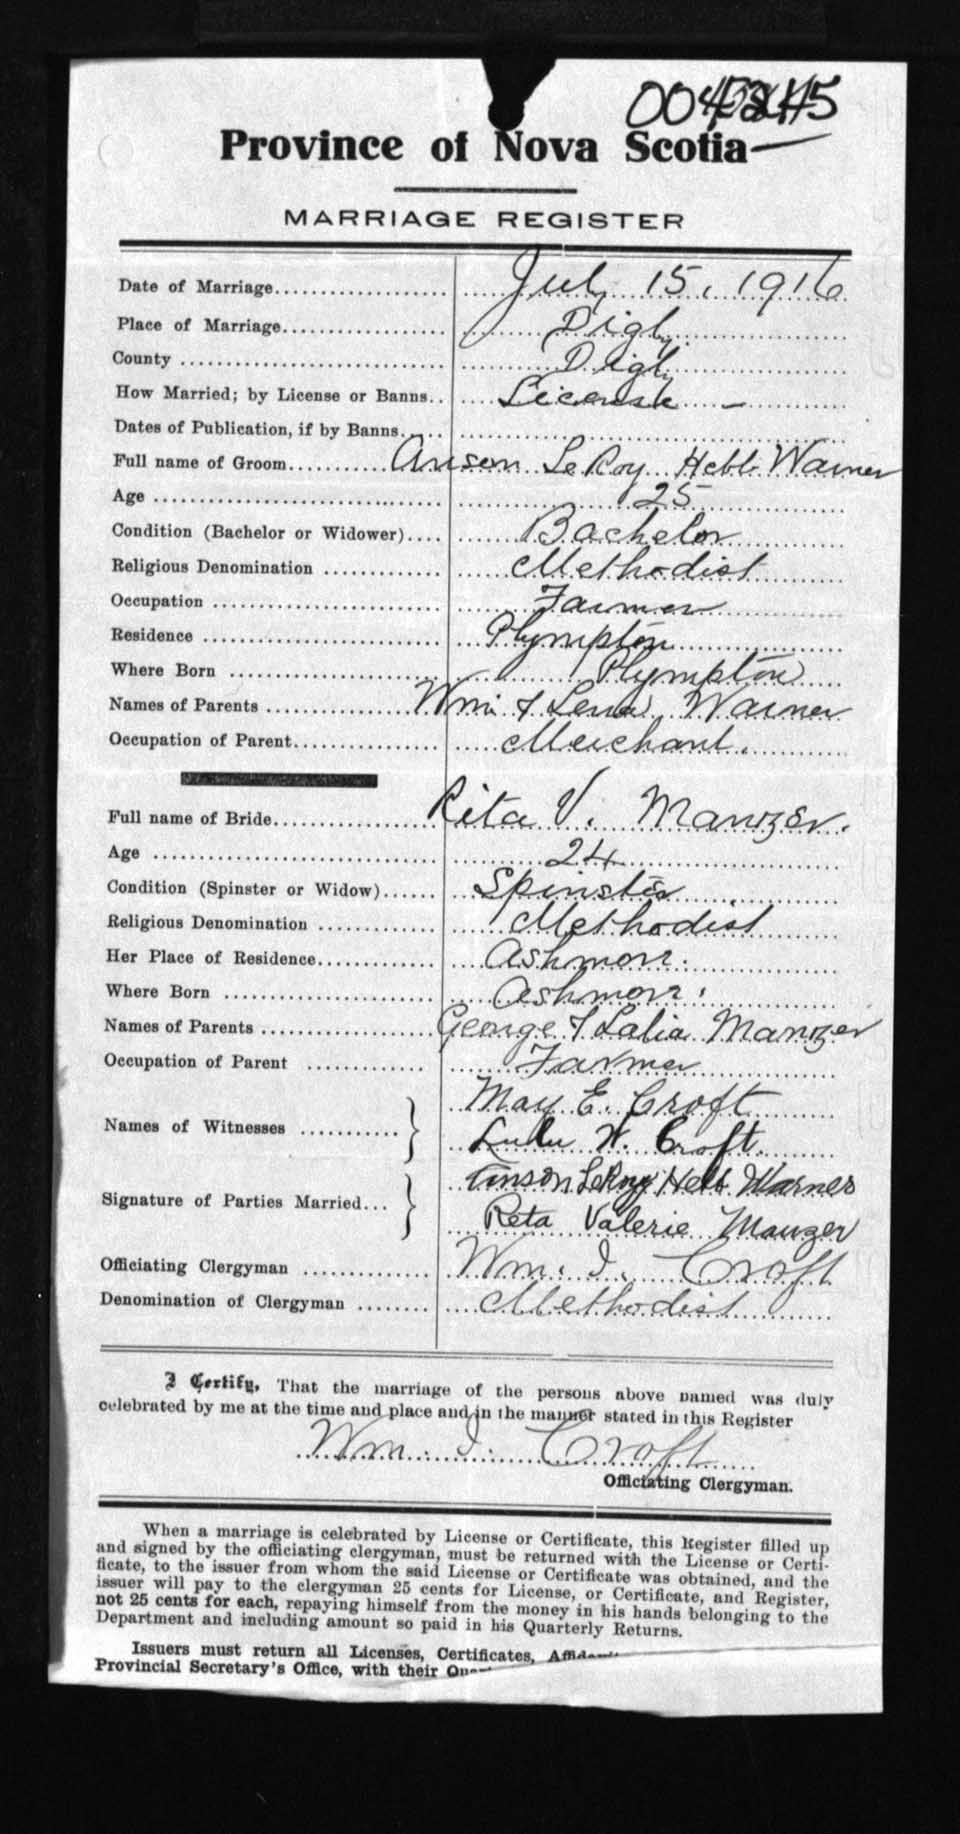 Province of Nova Scotia
MARRIAGE REGISTER
Date of Marriage July 15, 1916
Place of Marriage Digby
County Digby
How Married; by License or Banns License –
Dates of Publication, if by Banns
Full name of Groom Anson LeRoy Hebb Warner
Age 25
Condition (Bachelor or Widower) Bachelor
Religious Denomination Methodist
Occupation Farmer
Residence Plympton
Where Born Plympton
Names of Parents Wm & Lena Warner
Occupation of Parent Merchant.
Full name of Bride Rita V. Manzer.
Age 24
Condition (Spinster or Widow) Spinster
Religious Denomination Methodist
Her Place of Residence Ashmore.
Where Born Ashmore.
Names of Parents George & Lalia Manzer
Occupation of Parent Farmer
May E. Croft
Names of Witnesses
Lulu W. Croft.
Anson LeRoy Hebb Warner
Signature of Parties Married
Reta Valerie Manzer
Officiating Clergyman Wm. I. Croft
Denomination of Clergyman Methodist
I Certify, That the marriage of the persons above named was duly
celebrated by me at the time and place and in the manner stated in this Register
Wm. I. Croft
Officiating Clergyman.
When a marriage is celebrated by License or Certificate, this Register filled up
and signed by the officiating clergyman, must be returned with the License or Certi-
ficate, to the issuer from whom the said License or Certificate was obtained, and the
issuer will pay to the clergyman 25 cents for License, or Certificate, and Register,
not 25 cents for each, repaying himself from the money in his hands belonging to the
Department and including amount so paid in his Quarterly Returns.
Issuers must return all Licenses, Certificates,
Provincial Secretary's Office, with their